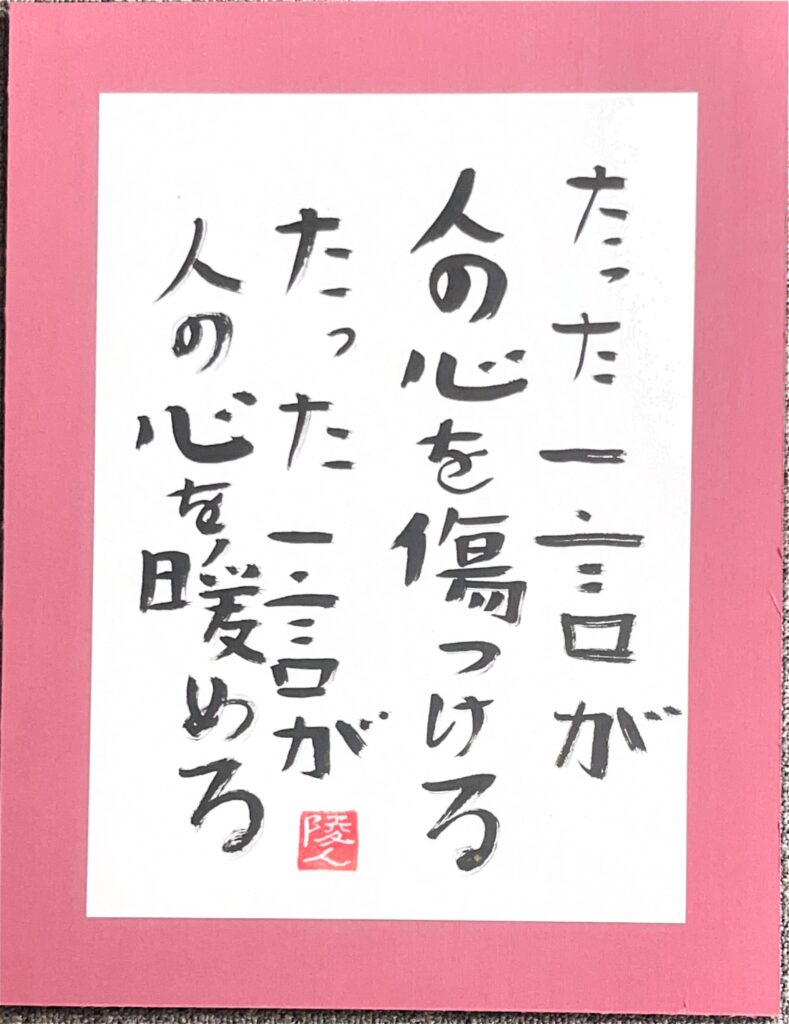 たった一言が
人の心を傷つける
たった一言が
人の心を暖める
陵人